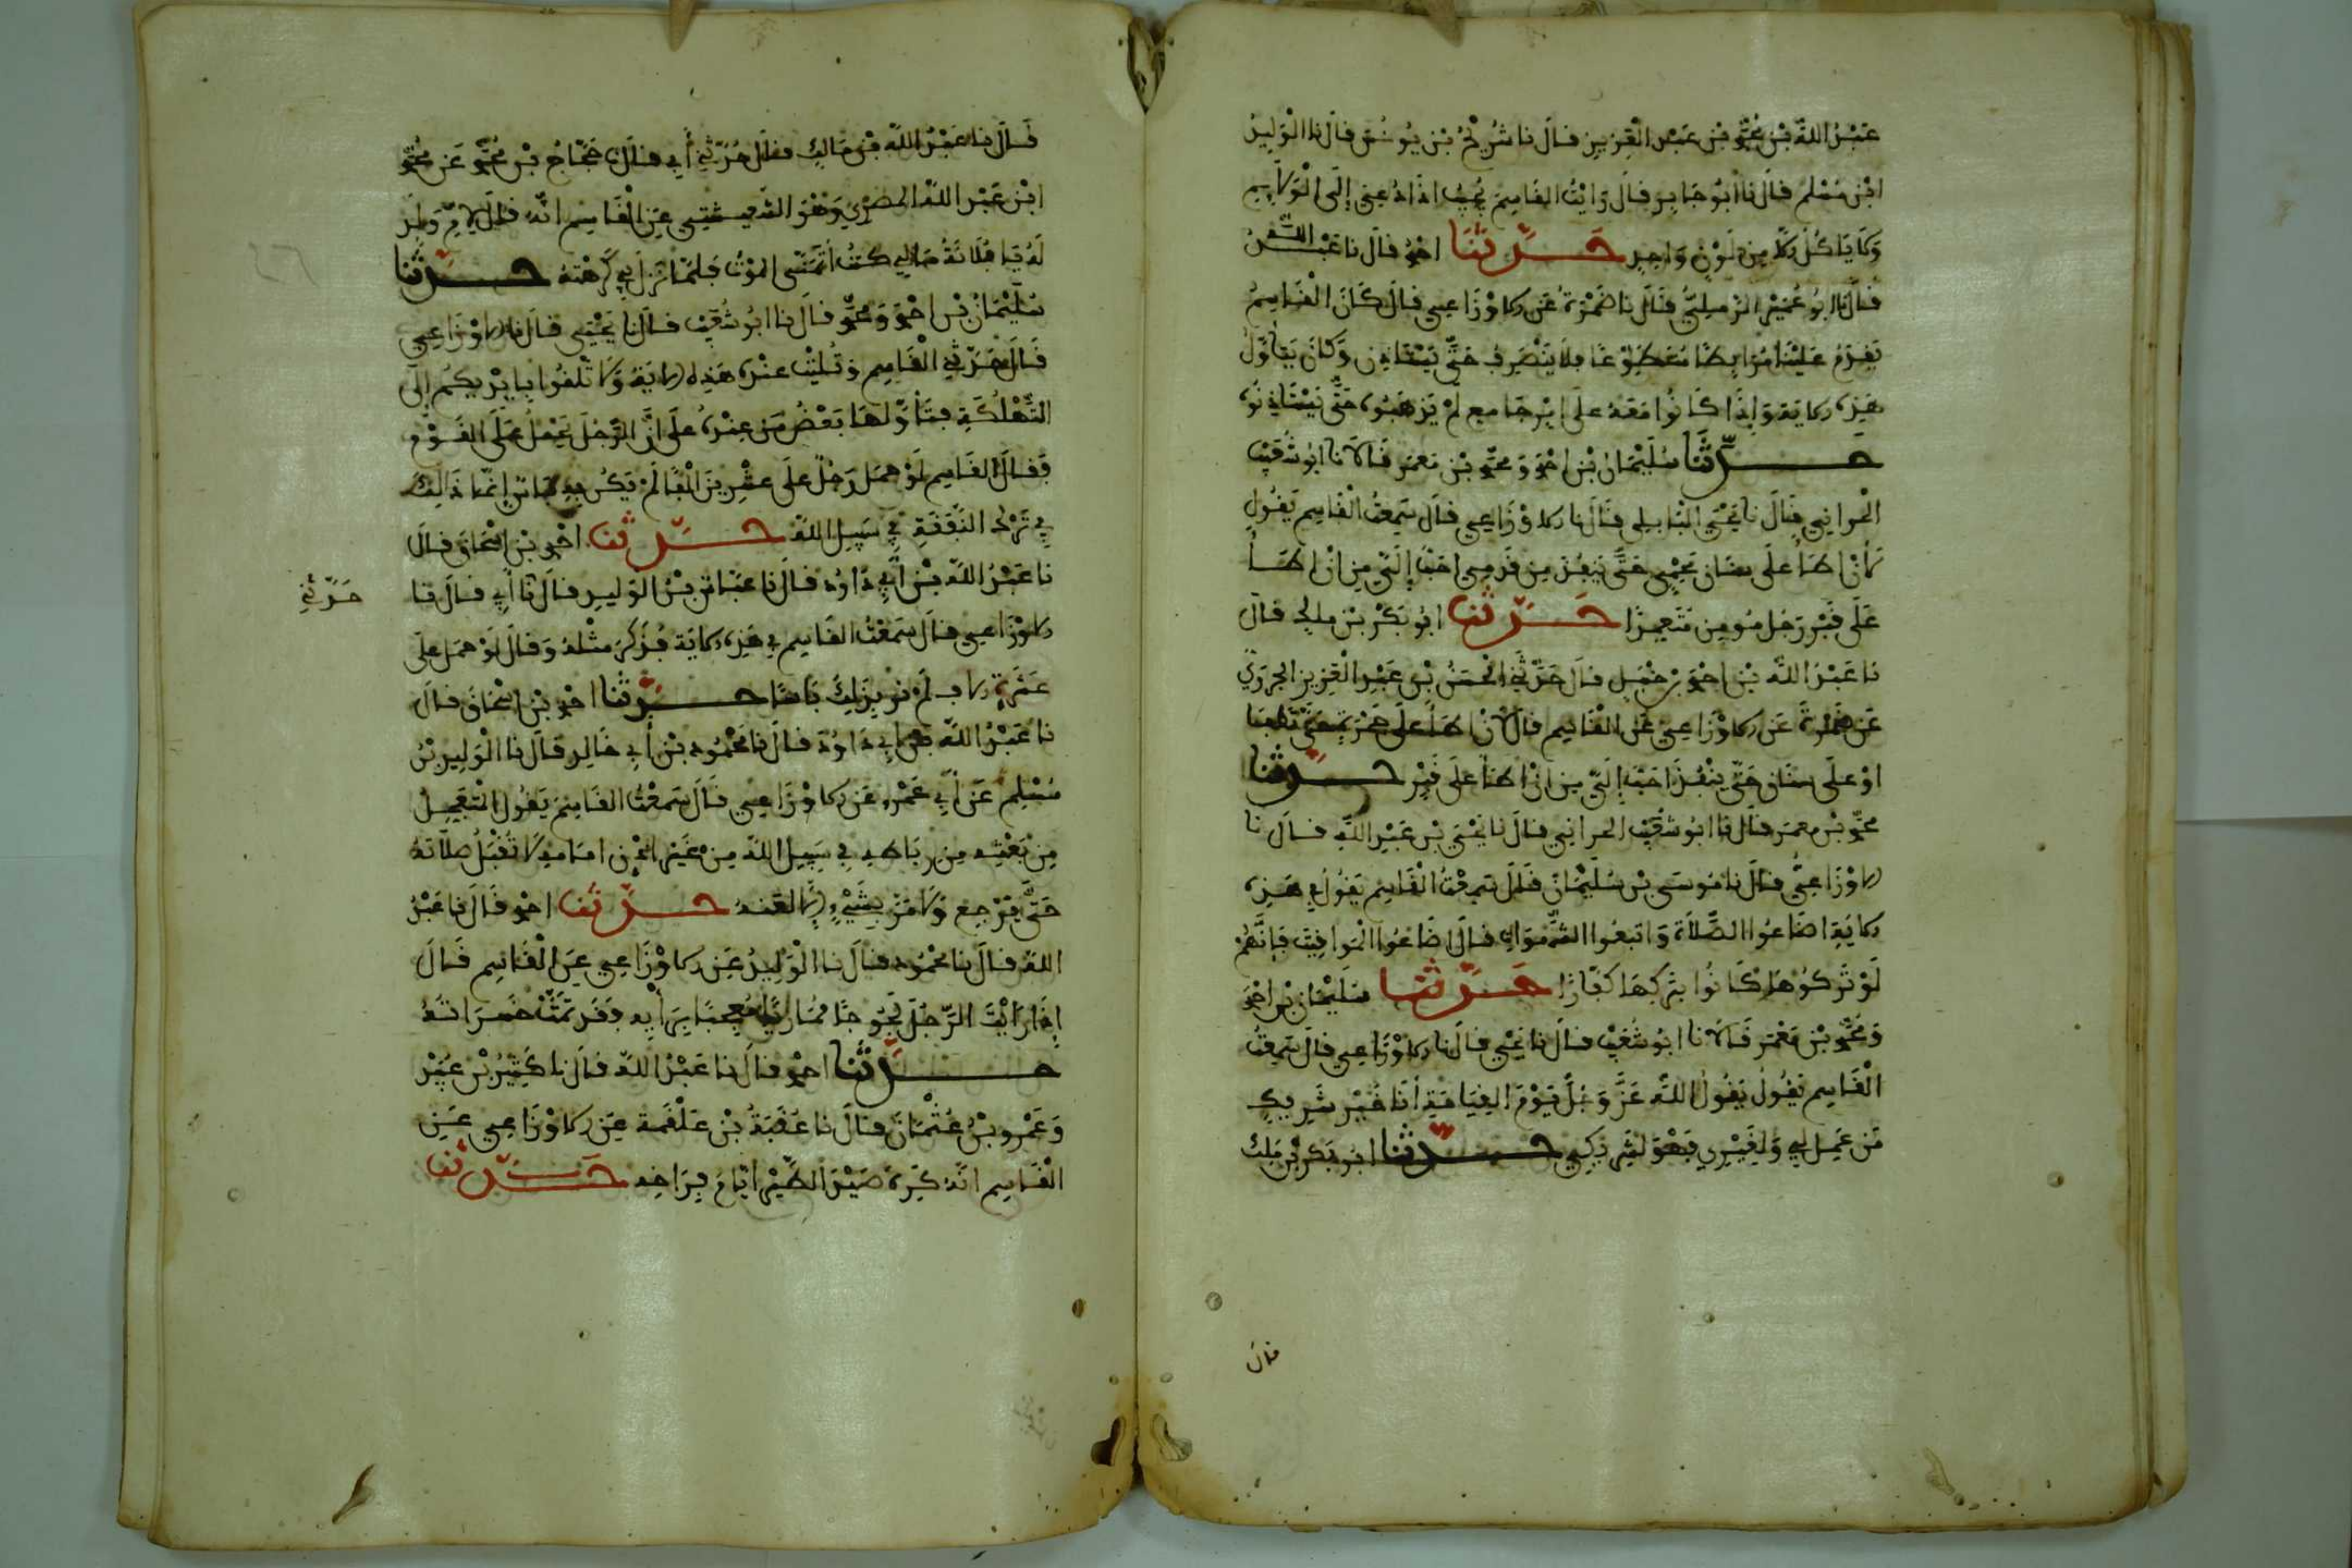 عَبْدُ اللهِ بْنُ مُحَمَّد بْنِ عَبْدِ الْعَزِيزِ قَالَ نا شُرَيْحُ بْنُ يُونُسَ قَالَ نا الْوَلِيدُ
ابْنُ مُسْلِم قَالَ نا أَبُو جَابِرٍ قَالَ رَأَيْتُ الْقَاسِمَ يُجِيبُ إِذَا دُعِيَ إِلَى الْوَلَايِمِ
وَلَا يَأْكُلُ إِلَّا مِن لَوْنٍ وَاحِدٍ حَدَّثَنَا أحمد قَالَ نا عَبْدُ اللهِ
قَالَ نا أَبُو عُمَيْرِ الرَّمْلِيُّ قَالَ نا ضَمْرَةُ عَنِ الأوْزَاعِي قَالَ كَانَ الْقَاسِمُ
يَقْدَمُ عَلَيْنَا مُرَابِطًا مُتَطَوِّعًا فَلَا يَنْصَرِفُ حَتَّى يَسْتَاذِن وَكَانَ يَتَأَوَّلُ
هَذِهِ الآيَةَ وَإِذَا كَانُوا مَعَهُ عَلَى أَمْرٍ جَامِعٍ لَمْ يَذْهَبُوا حَتَّى يَسْتَاذِنُوهُ
حَدَّثَنَا سُلَيْمَانُ بْنُ أحمد وَ محمد بْنُ مَعْمَر قَالَا نا أَبُو شُعَيْب
الحراني قَالَ نا يَحْيَى الْبَابِلِي قَالَ نا الأوْزَاعِي قَالَ سَمِعْتُ الْقَاسِم يَقُولُ
لَأَنْ أَطَأَ عَلَى سِنَانٍ مُحْمِيٍ حَتَّى يَنْفُذَ مِن قَدَمِي أَحَبُّ إِلَيَّ مِن أَنْ أَطَأَ
عَلَى قَبْرِ رَجُلٍ مُومِنٍ مُتَعَمِّدًا حَدَّثَنَا أَبُو بَكْرِ بْنُ مالِك قَالَ
نا عَبْدُ اللهِ بْنُ أحمد بْنِ حَنْبَلٍ قَالَ حَدَّثَنِي الْحَسَنُ بْنُ عَبْدِ الْعَزِيزِ الجَرَوِيّ
عَن ضَمْرَةَ عَنِ الأوْزَاعِي عَنِ الْقَاسِمِ قَالَ لأَنْ أَطَأَ عَلَى جَمْرَةٍ حَتَّى تَطْفَأَ
أَوْ عَلَى سِنَانٍ حَتَّى يَنْفُذَ أَحَبُّ إِلَيَّ مِن أَنْ أَطَأَ عَلَى قَبْرٍ حَدَّثَنَا
محمد بْنُ مَعْمَر قَالَ نا أَبُو شُعَيْب الحراني قَالَ نا يَحْيَى بْنُ عَبْدِ اللهِ قَالَ نا
الأوْزَاعِيُّ قَالَ نا مُوسَى بْنُ سُلَيْمَانَ قَالَ سَمِعْتُ الْقَاسِم يَقُولُ فِي هَذِهِ
الآيَةِ أَضَاعُوا الصَّلَاةَ وَاتَّبَعُوا الشَّهَوَاتِ قَالَ أَضَاعُوا الْمَوَاقِيتَ فَإِنَّهُمْ
لَوْ تَرَكُوْهَا كَانُوا بِتَرْكِهَا كُفَّارًا حَدَّثَنَا سُلَيْمَانُ بْنُ أحمد
وَمُحَمَّد بْنُ مَعْمَر قَالَا نا أَبُو شُعَيْب قَالَ نا يَحْيَى قَالَ نا الأوْزَاعِي قَالَ سَمِعْتُ
الْقَاسِم يَقُولُ يَقُولُ اللهُ عَزَّ وَجَلَّ يَوْمَ الْقِيَامَةِ أَنَا خَيْرُ شَرِيكٍ
مَن عَمِلَ لِي وَلِغَيْرِي فَهُوَ لِشَرِيكِي حَدَّثَنَا أَبُو بَكْرِ بْنُ مَلِك
قال
قَالَ نا عَبْدُ اللهِ بْنُ مَالِك فقَالَ حَدَّثَنِي أَبِي قَالَ نا حَجَّاجُ بْنُ مُحَمَّد عَن مُحَمَّد
ابْنِ عَبْدِ اللهِ الْمِصْرِي وَهُوَ الشعيثي عَنِ الْقَاسِمِ أَنَّهُ قَالَ لِأُمِّ وَلَدٍ
لَهُ يَا فُلَانَةُ مَالِي كنتُ أَتَمَنَّى الْمَوْتَ فَلَمَّا نَزَلَ بِي كَرِهْتُهُ حَدَّثَنَا
سُلَيْمَانُ بْنُ أحمد وَ مُحَمَّد قَالَ نا أَبُو شُعَيْب قَالَ نا يَحْيَى قَالَ نا الأوْزَاعِي
قَالَ حَدَّثَنِي الْقَاسِم وَتُلِيَتْ عِنْدَهُ هَذِهِ الآيَةُ وَلَا تُلْقُوا بِأَيْدِيكُم إِلَى
التَّهْلُكَةِ فَتَأَوَّلَهَا بَعْضُ مَن عِنْدَهُ عَلَى أَنَّ الرَّجُلَ يَحْمِلُ عَلَى الْقَوْمِ
فَقَالَ الْقَاسِم لَوْ حَمَلَ رَجُلٌ عَلَى عَشْرِينَ أَلْفًا لَمْ يَكُن بِهِ بَأسٌ إِنَّمَا ذَالِكَ
فِي تَرْكِ النَّفَقَةِ فِي سَبِيلِ اللهِ حَدَّثَنَا أحمد بْنُ إِسْحَاقَ قَالَ
نا عَبْدُ اللهِ بْنُ أَبِي دَاوُد قَالَ نا عَبَّاسُ بْنُ الْوَلِيدِ قَالَ نا أَبِي قَالَ نا
حَدَّثَنِي
الأوْزَاعِي قَالَ سَمِعْتُ الْقَاسِم فِي هَذِهِ الآيَةِ فَذَكَرَ مِثْلَهُ وَقَالَ لَوْ حَمَلَ عَلَى
عَشْرَةِ آلاف لَمْ نَرَ بِذَلِكَ بَاسًا حَدَّثَنَا أحمد بْنُ إِسْحَاقَ قَالَ
نا عَبْدُ اللهِ بْنُ أَبِي دَاوُدَ قَالَ نا مَحْمُودُ بْنُ أَبِي خَالِدٍ قَالَ نا الْوَلِيدُ بْنُ
مُسْلِم عَن أَبِي عَمْرٍو عَنِ الأوْزَاعِي قَالَ سَمِعْتُ الْقَاسِمَ يَقُولُ الْمُتَعَجِّلُ
مِن بَعْثِهِ مِن رِبَاطِهِ فِي سَبِيلِ اللهِ مِن غَيْرِ إِذْنِ إِمَامِهِ لَا تُقْبَلُ صَلَاتُهُ
حَتَّى يَرْجِعَ وَلَا مَرَّ بِشَيْءٍ إِلَّا لَعَنَهُ حَدَّثَنَا أحمد قَالَ نا عَبْدُ
اللهِ قَالَ نا مَحْمُود قَالَ نا الْوَلِيدُ عَنِ الأوْزَاعِي عَنِ الْقَاسِمِ قَالَ
إِذَا رَأَيْتَ الرَّجُلَ لَجُوجًا مُمَارِيًا مُعْجَبًا بِرَأْيِهِ فَقَد تَمَّتْ خَسَرَاتُهُ
حَدَّثَنَا أحمد قَالَ نا عَبْدُ اللهِ قَالَ نا كَثِيرُ بْنُ عُبَيْد
وَعَمْرُو بْنُ عُثْمَانَ قَالَ نا عُقْبَةُ بْنُ عَلْقَمَةَ عَنِ الأوْزَاعِي عَنِ
الْقَاسِمِ أَنَّهُ كَرِهَ صَيْدَ الطَّيْرِ أَيَّامَ فِرَاخِهِ حَدَّثَنَا